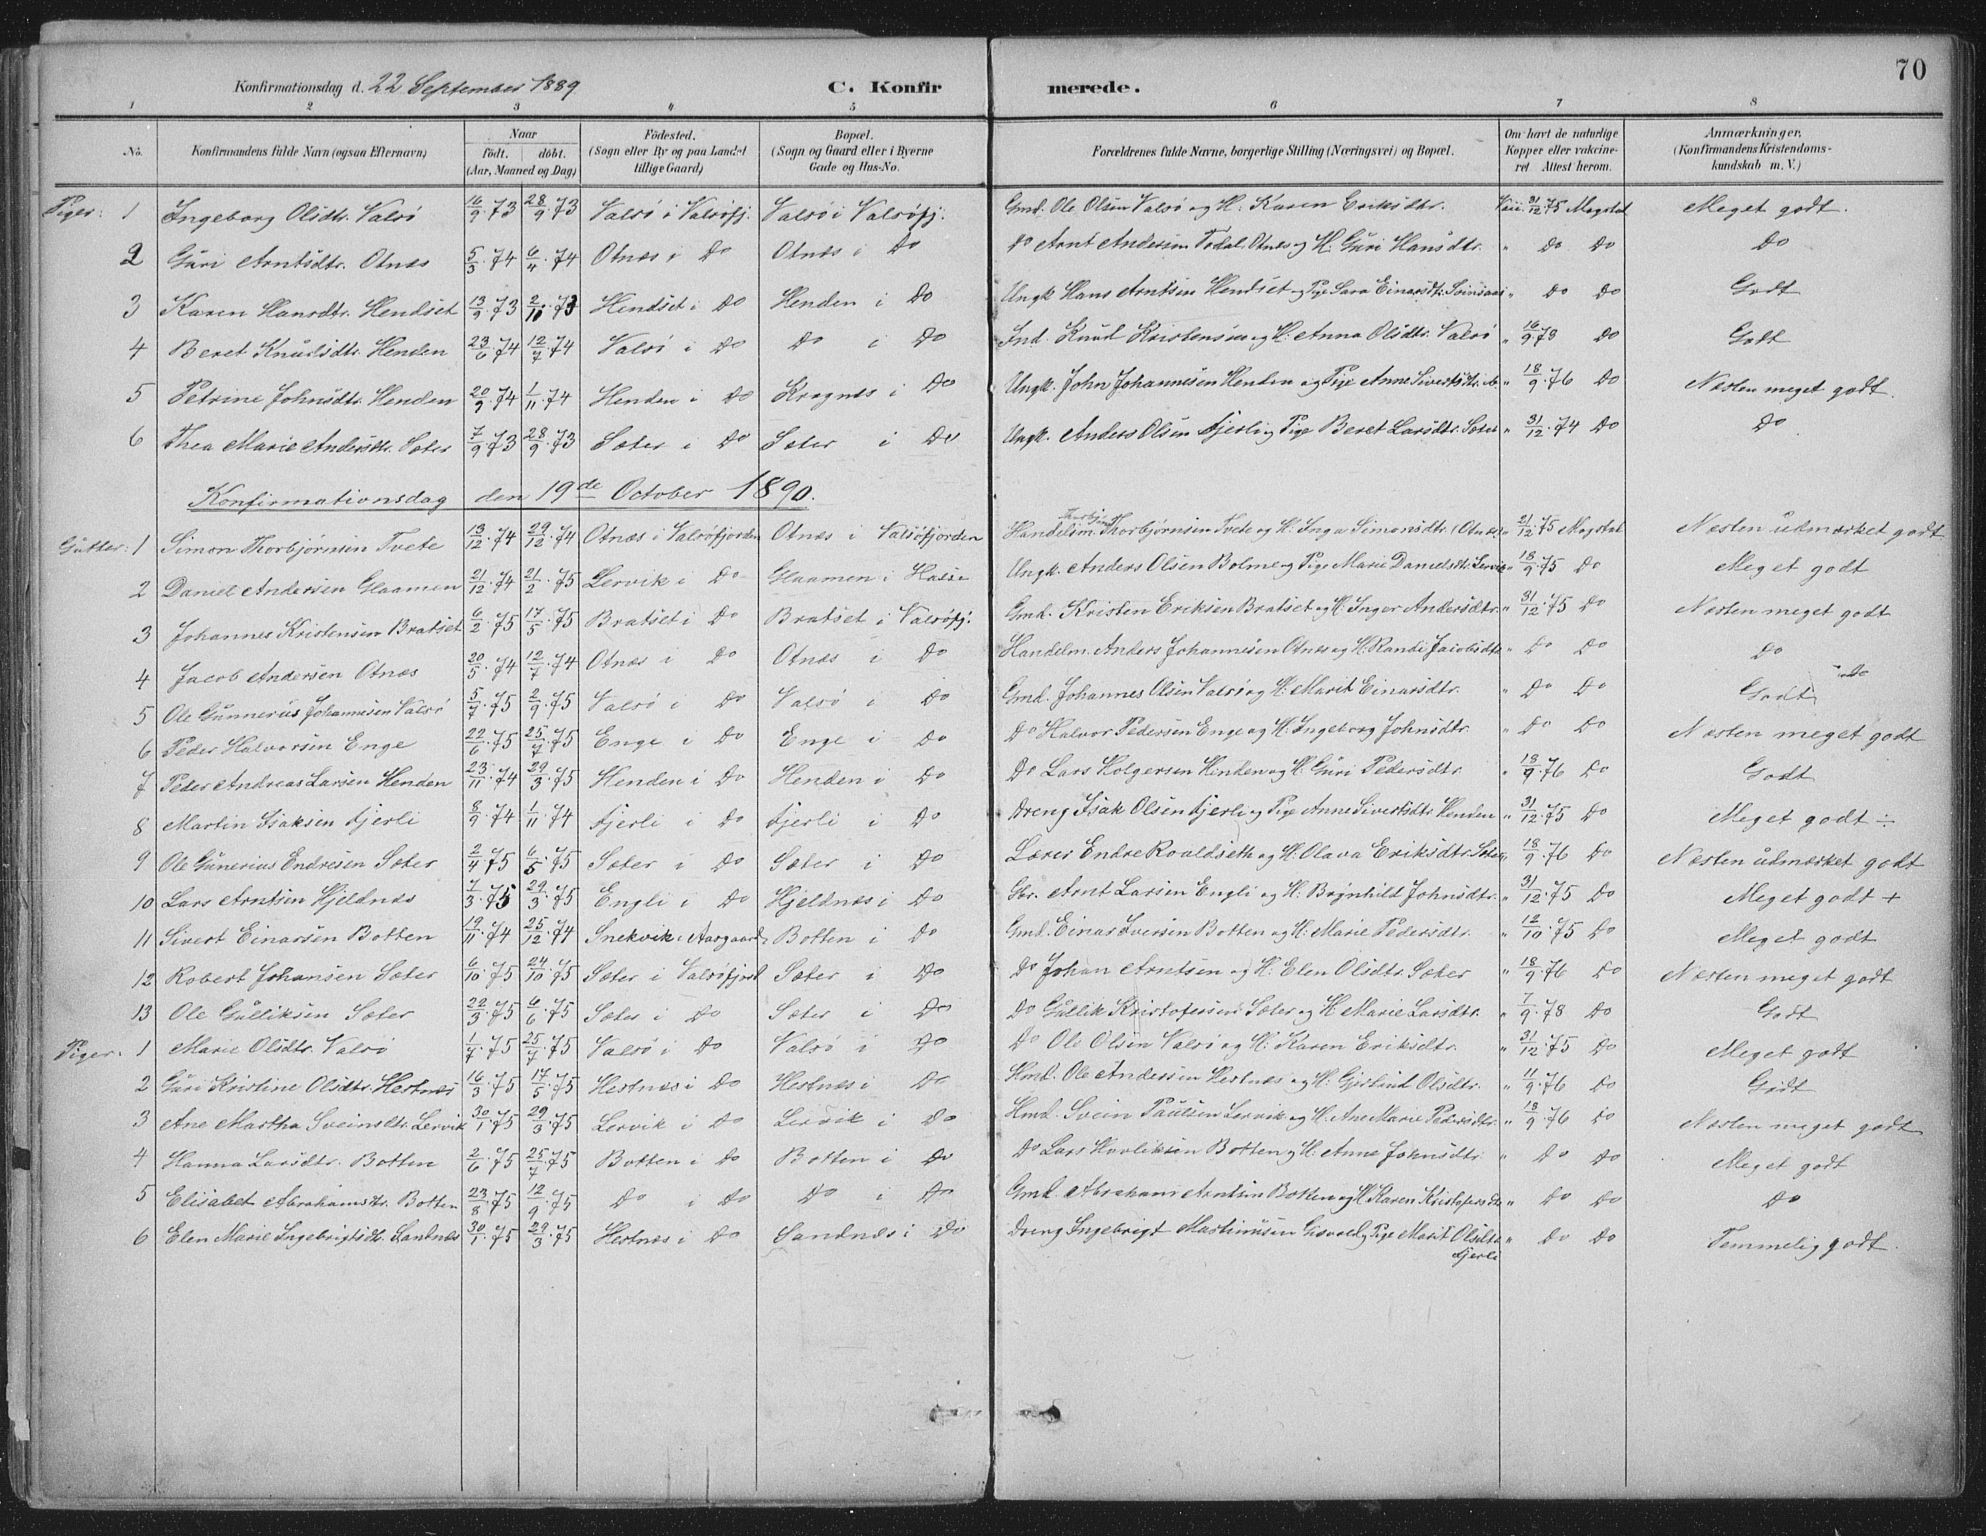 70
Konfirmationsdag d. 22 September 1889
C. Konfirmerede.
1 2 3 4 5 6 7 8
No. Konfirmandens fulde Navn (ogsaa Efternavn) Naar födt. döbt. (Aar, Maaned og Dag) Födested. (Sogn eller By og paa Landet tillige Gaard) Bopæl. (Sogn og Gaard eller i Byerne Gade og Hus-No. Forældrenes fulde Navne, borgerlige Stilling (Næringsvei) og Bopæl. Om havt de naturlige Kopper eller vakcineret Attest herom. Anmærkninger. (Konfirmandens Kristendomskundskab m. V.)
Piger: 1 Ingeborg Olsdtr. Valsö 16/9 73 28/9 73 Valsö i Valsöfj. Valsö i Valsöfj. Gmd. Ole Olsen Valsö og H. Karen Eriksdtr. Vacc. 31/12 75 Magstad Meget godt.
2 Guri Arntsdtr. Otnæs 5/3 74 6/4 74 Otnæs i Do Otnæs i Do Do Arnt Andersen Todal. Otnæs og H. Guri Hansdtr. " Do Do Do
3 Karen Hansdtr. Hendset 13/9 73 2/11 73 Hendset i Do Henden i Do Ungk. Hans Arntsen Hendset og Pige Sara Einarsdtr. " Do Do Godt
4 Beret Knudsdtr. Henden 23/6 74 12/7 74 Valsö i Do Do i Do Ind. Knud Kristensen og H. Anna Olsdtr. Valsö " 16/9 78 Do Godt
5 Petrine Johnsdtr. Henden 20/9 74 1/11 74 Henden i Do Krognes i Do Ungk. John Johannesen Henden og Pige Anne Sivertsdtr. " 18/9 76 Do Næsten meget godt.
6 Thea Marie Andersdtr. Sæter 7/9 73 28/9 73 Sæter i Do Sæter i Do Ungk. Anders Olsen Fjerli og Pige Beret Larsdtr. Sæter " 31/12 74 Do Do
Konfirmationsdag den 19de October 1890.
Gutter: 1 Simon Thorbjørnsen Tvete 13/12 74 29/12 74 Otnæs i Valsöfjorden Otnæs i Valsöfjorden Handelsm Thorbjørnsen Tvete og H. Inga Simonsdtr. (Otnæs " 21/12 75 Magstad Næsten udmærket godt
2 Daniel Andersen Glaamen 21/12 74 21/2 75 Lervik i Do Glaamen i Halse Ungk. Anders Olsen Bolme og Pige Marie Danielsdtr. Lervik " 18/9 75 Do Meget godt
3 Johannes Kristensen Bratset 6/2 75 17/5 75 Bratset i Do Bratset i Valsöfj. Gmd. Kristen Eriksen Bratset og H. Inger Andersdtr. " 31/12 75 Do Næsten meget godt
4 Jacob Andersen Otnæs 20/5 74 12/7 74 Otnæs i Do Otnæs i Do Handelm. Anders Johannesen Otnæs og H. Randi Jacobsdtr " Do Do Do
5 Ole Gunnerius Johannesen Valsö 5/7 75 2/9 75 Valsö i Do Valsö i Do Gmd. Johannes Olsen Valsö og H. Marit Einarsdtr. " Do Do Godt
6 Peder Halvorsen Enge 22/6 75 25/7 75 Enge i Do Enge i Do Do Halvor Pedersen Enge og H. Ingeborg Johnsdtr. " Do Do Næsten meget godt
7 Peder Andreas Larsen Henden 23/11 74 29/3 75 Henden i Do Henden i Do Do Lars Holgersen Henden og H. Guri Pedersdtr " 18/9 76 Do Godt
8 Martin Isaksen Fjerli 8/9 74 1/11 74 Fjerli i Do Fjerli i Do Dreng Isak Olsen Fjerli og Pige Anne Sivertsdtr. Henden " 31/12 75 Do Meget godt ÷
9 Ole Gunerius Endresen Sæter 2/4 75 6/5 75 Sæter i Do Sæter i Do Lærer Endre Roaldseth og H. Olava Eriksdtr. Sæter " 18/9 76 Do Næsten udmærket godt
10 Lars Arntsen Hjeldnæs 7/3 75 29/3 75 Engli i Do Hjeldnæs i Do Gbr. Arnt Larsen Engli og H. Brynhild Johnsdtr. " 31/12 75 Do Meget godt +
11 Sivert Einarsen Botten 19/11 74 25/12 74 Snekvik i Aasgaard Botten i Do Gmd. Einar Iversen Botten og H. Marie Pedersdtr. " 12/10 75 Do Meget godt
12 Robert Johansen Sæter 6/10 75 24/10 75 Sæter i Valsöfjord Sæter i Do Do Johan Arntsen og H. Elen Olsdtr. Sæter " 18/9 76 Do Næsten meget godt
13 Ole Gulliksen Sæter 22/3 75 6/6 75 Sæter i Do Sæter i Do Do Gullik Kristofersen Sæter og H Marie Larsdtr. " 7/9 78 Do Godt
Piger: 1 Marie Olsdtr. Valsö 1/7 75 25/7 75 Valsö i Do Valsö i Do Do Ole Olsen Valsö og H. Karen Eriksdtr. " 31/12 75 Do Meget godt
2 Guri Kristine Olsdtr. Hestnæs 16/3 75 17/5 75 Hestnæs i Do Hestnæs i Do Hmd. Ole Andersen Hestnæs og H. Gjertrud Olsdtr. " 11/9 76 Do Godt
3 Ane Martha Sveinsdtr. Lervik 30/1 75 29/3 75 Lervik i Do Lervik i Do Hmd. Svein Paulsen Lervik og H. Ane Marie Pedersdtr. " 18/9 76 Do Næsten meget godt
4 Hanna Larsdtr. Botten 2/6 75 25/7 75 Botten i Do Botten i Do Do Lars Havliksen Botten og H. Anne Johnsdtr " Do Do Meget godt
5 Elisabet Abrahamsdtr. Botten 23/8 75 12/9 75 Do i Do Do i Do Gmd. Abraham Arntsen Botten og H. Karen Kristofersdtr " Do Do Do
6 Elen Marie Ingebrigtsdtr. Sandnæs 30/1 75 29/3 75 Hestnæs i Do Sandnæs i Do Dreng Ingebrigt Martinusen og Pige Marit Olsdtr " Do Do Temmelig godt.
Fjerli